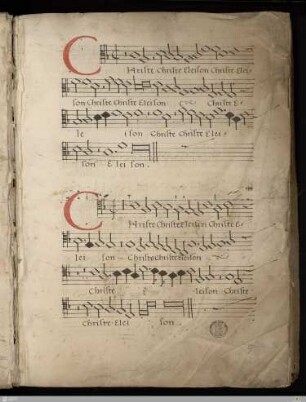 Christe Christe Eleison Christe Elei-
son Christe Christe Eleison Christe E-
le ison Christe Christe Elei-
son E lei son.
Christe Christe Eleison Christe E-
lei son Christe Christe Eleison
Christe E leison Christe
Christe Elei son